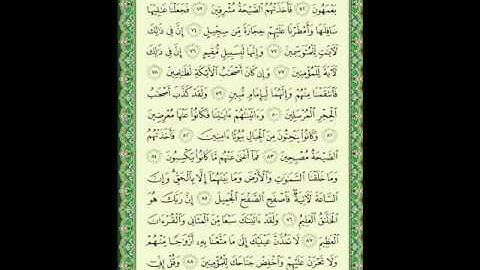 يَعْمَهُونَ ٧٢ فَأَخَذَتْهُمُ ٱلصَّيْحَةُ مُشْرِقِينَ ٧٣ فَجَعَلْنَا عَٰلِيَهَا
سَافِلَهَا وَأَمْطَرْنَا عَلَيْهِمْ حِجَارَةً مِّن سِجِّيلٍ ٧٤ إِنَّ فِى ذَٰلِكَ
لَءَايَٰتٍ لِّلْمُتَوَسِّمِينَ ٧٥ وَإِنَّهَا لَبِسَبِيلٍ مُّقِيمٍ ٧٦ إِنَّ فِى ذَٰلِكَ
لَءَايَةً لِّلْمُؤْمِنِينَ ٧٧ وَإِن كَانَ أَصْحَٰبُ ٱلْأَيْكَةِ لَظَٰلِمِينَ ٧٨
فَٱنتَقَمْنَا مِنْهُمْ وَإِنَّهُمَا لَبِإِمَامٍ مُّبِينٍ ٧٩ وَلَقَدْ كَذَّبَ أَصْحَٰبُ
ٱلْحِجْرِ ٱلْمُرْسَلِينَ ٨٠ وَءَاتَيْنَٰهُمْ ءَايَٰتِنَا فَكَانُوا۟ عَنْهَا مُعْرِضِينَ
٨١ وَكَانُوا۟ يَنْحِتُونَ مِنَ ٱلْجِبَالِ بُيُوتًا ءَامِنِينَ ٨٢ فَأَخَذَتْهُمُ
ٱلصَّيْحَةُ مُصْبِحِينَ ٨٣ فَمَآ أَغْنَىٰ عَنْهُم مَّا كَانُوا۟ يَكْسِبُونَ ٨٤
وَمَا خَلَقْنَا ٱلسَّمَٰوَٰتِ وَٱلْأَرْضَ وَمَا بَيْنَهُمَآ إِلَّا بِٱلْحَقِّ وَإِنَّ
ٱلسَّاعَةَ لَءَاتِيَةٌ فَٱصْفَحِ ٱلصَّفْحَ ٱلْجَمِيلَ ٨٥ إِنَّ رَبَّكَ هُوَ
ٱلْخَلَّٰقُ ٱلْعَلِيمُ ٨٦ وَلَقَدْ ءَاتَيْنَٰكَ سَبْعًا مِّنَ ٱلْمَثَانِى وَٱلْقُرْءَانَ
ٱلْعَظِيمَ ٨٧ لَا تَمُدَّنَّ عَيْنَيْكَ إِلَىٰ مَا مَتَّعْنَا بِهِۦٓ أَزْوَٰجًا مِّنْهُمْ
وَلَا تَحْزَنْ عَلَيْهِمْ وَٱخْفِضْ جَنَاحَكَ لِلْمُؤْمِنِينَ ٨٨ وَقُلْ إِنِّىٓ